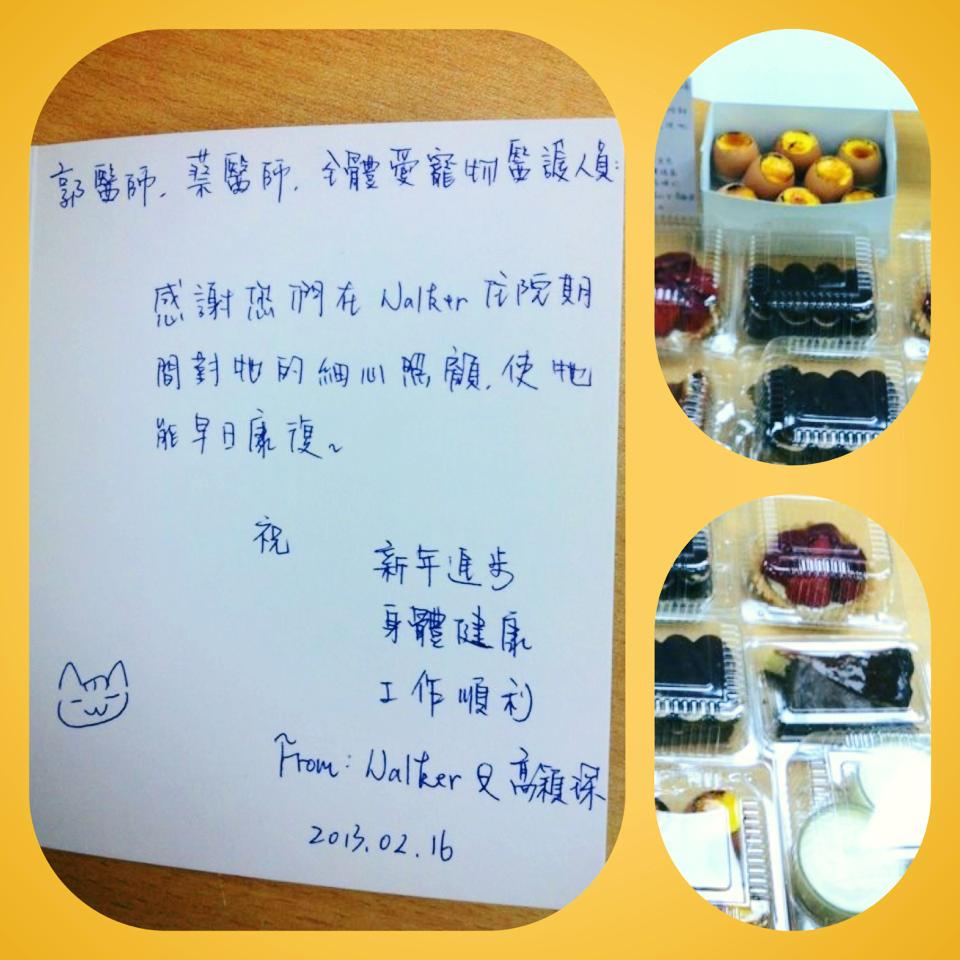 郭醫師. 蔡醫師. 全體愛寵物醫護人員:
感謝您們在 Walker 住院期
間對牠的細心照顧, 使牠
能早日康復~
祝
新年進步
身體健康
工作順利
From: Walker 及 高穎琛
2013.02.16